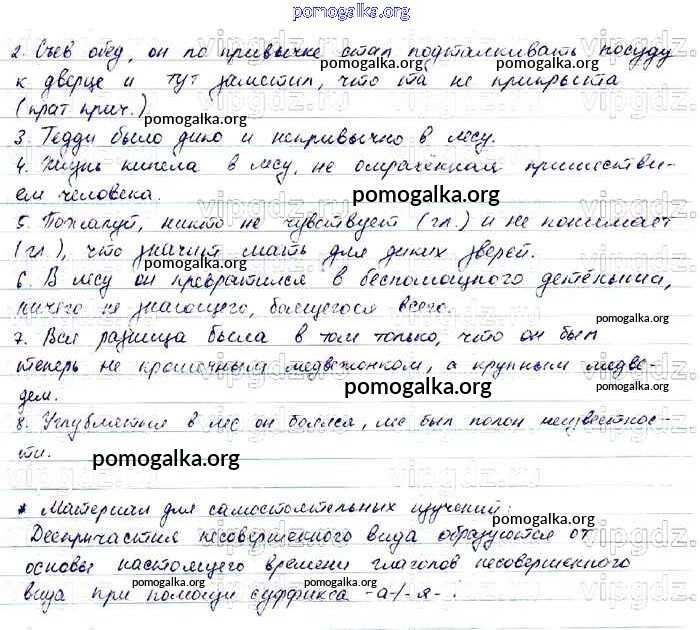 pomogalka.org
2. Съев обед, он по привычке стал подталкивать посуду
к дверце и тут заметил, что та не прикрыта
(крат. прич.)
pomogalka.org
3. Тедди было дико и непривычно в лесу.
4. Жизнь кипела в лесу, не омрачённая пришестви-
ем человека.
pomogalka.org
5. Пожалуй, никто не чувствует (гл.) и не понимает
(гл.), что значит мать для диких зверей.
pomogalka.org
6. В лесу он превратился в беспомощного детёныша,
ничего не знающего, боящегося всего.
pomogalka.org
7. Вся разница была в том только, что он был
теперь не крошечным медвежонком, а крупным медве-
дем.
pomogalka.org
8. Углубляться в лес он боялся, лес был полон неизвестнос-
ти.
pomogalka.org
* Материал для самостоятельных изучений:
pomogalka.org
Деепричастия несовершенного вида образуются от
основы настоящего времени глаголов несовершенного
pomogalka.org
вида при помощи суффикса -а-/-я- .